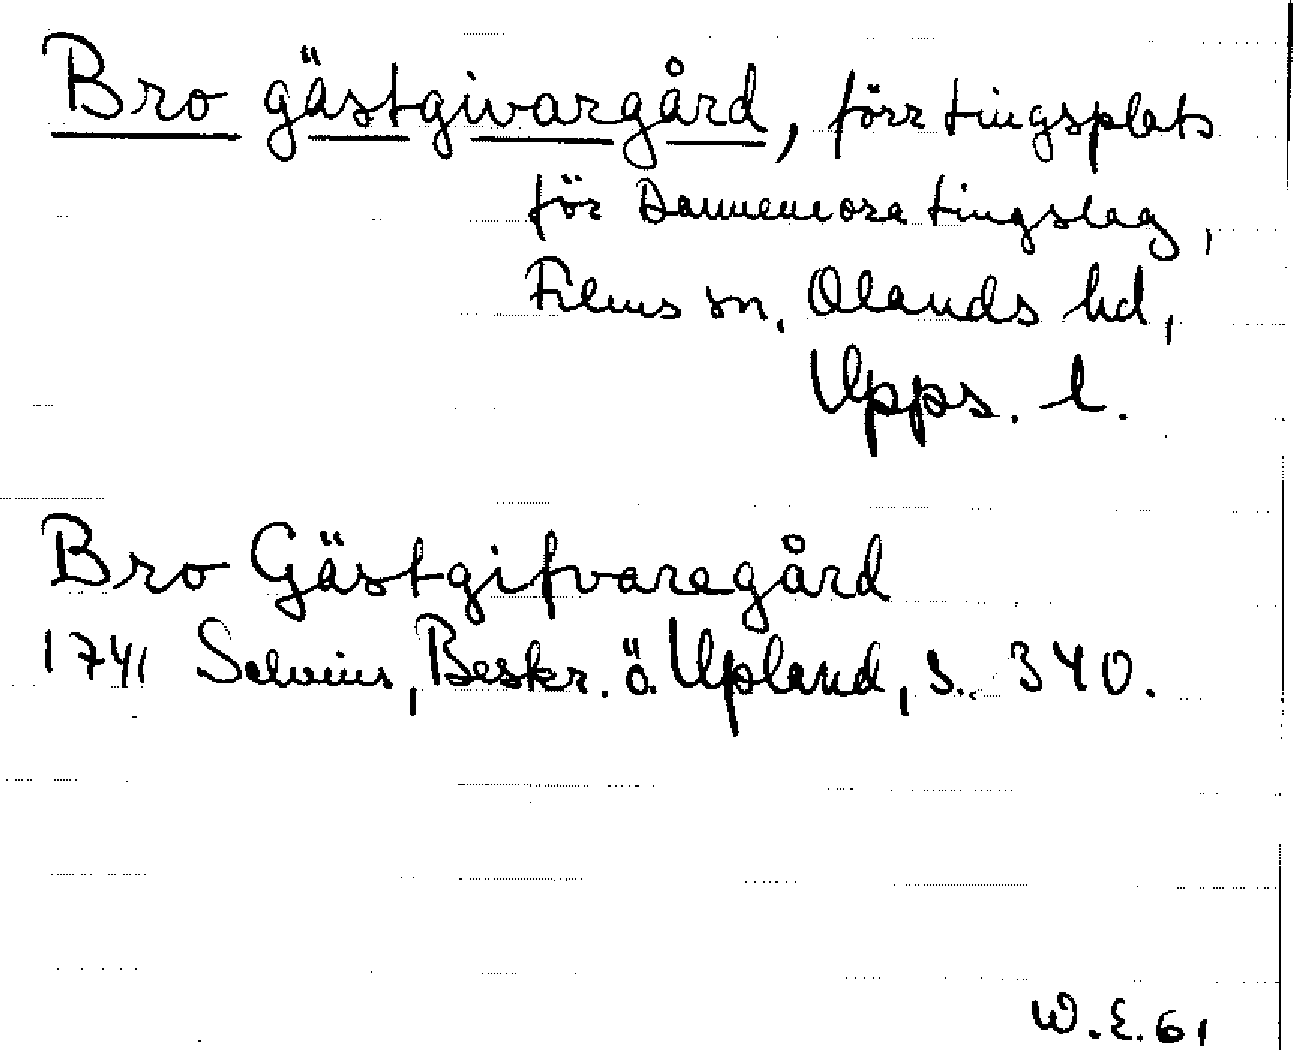 Bro gästgivargård, förr tingsplats
för Dannemora tingslag,
Films sn, Olands hd,
Upps. l.
Bro Gästgifvaregård
1741 Salvius, Beskr. ö. Upland, s. 340.
W.E.61